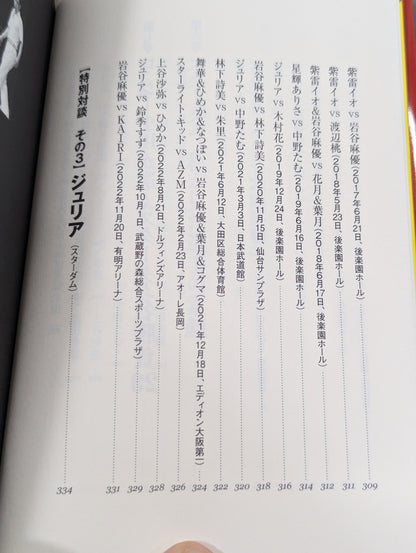 紫雷イオ vs 岩谷麻優(2017年6月21日、後楽園ホール) 309
紫雷イオ vs 渡辺桃(2018年5月23日、後楽園ホール) 311
紫雷イオ&岩谷麻優 vs 花月&葉月(2018年6月17日、後楽園ホール) 312
星輝ありさ vs 中野たむ(2019年6月16日、後楽園ホール) 314
ジュリア vs 木村花(2019年12月24日、後楽園ホール) 316
岩谷麻優 vs 林下詩美(2020年11月15日、仙台サンプラザ) 318
ジュリア vs 中野たむ(2021年3月3日、日本武道館) 320
林下詩美 vs 朱里(2021年6月12日、大田区総合体育館) 322
舞華&ひめか&なつぽい vs 岩谷麻優&葉月&コグマ(2021年12月18日、エディオン大阪第二) 324
スターライト・キッド vs AZM(2022年2月23日、アオーレ長岡) 326
上谷沙弥 vs ひめか(2022年8月21日、ドルフィンズアリーナ) 328
ジュリア vs 鈴季すず(2022年10月1日、武蔵野の森総合スポーツプラザ) 329
岩谷麻優 vs KAIRI(2022年11月20日、有明アリーナ) 331
【特別対談 その3】ジュリア(スターダム) 334